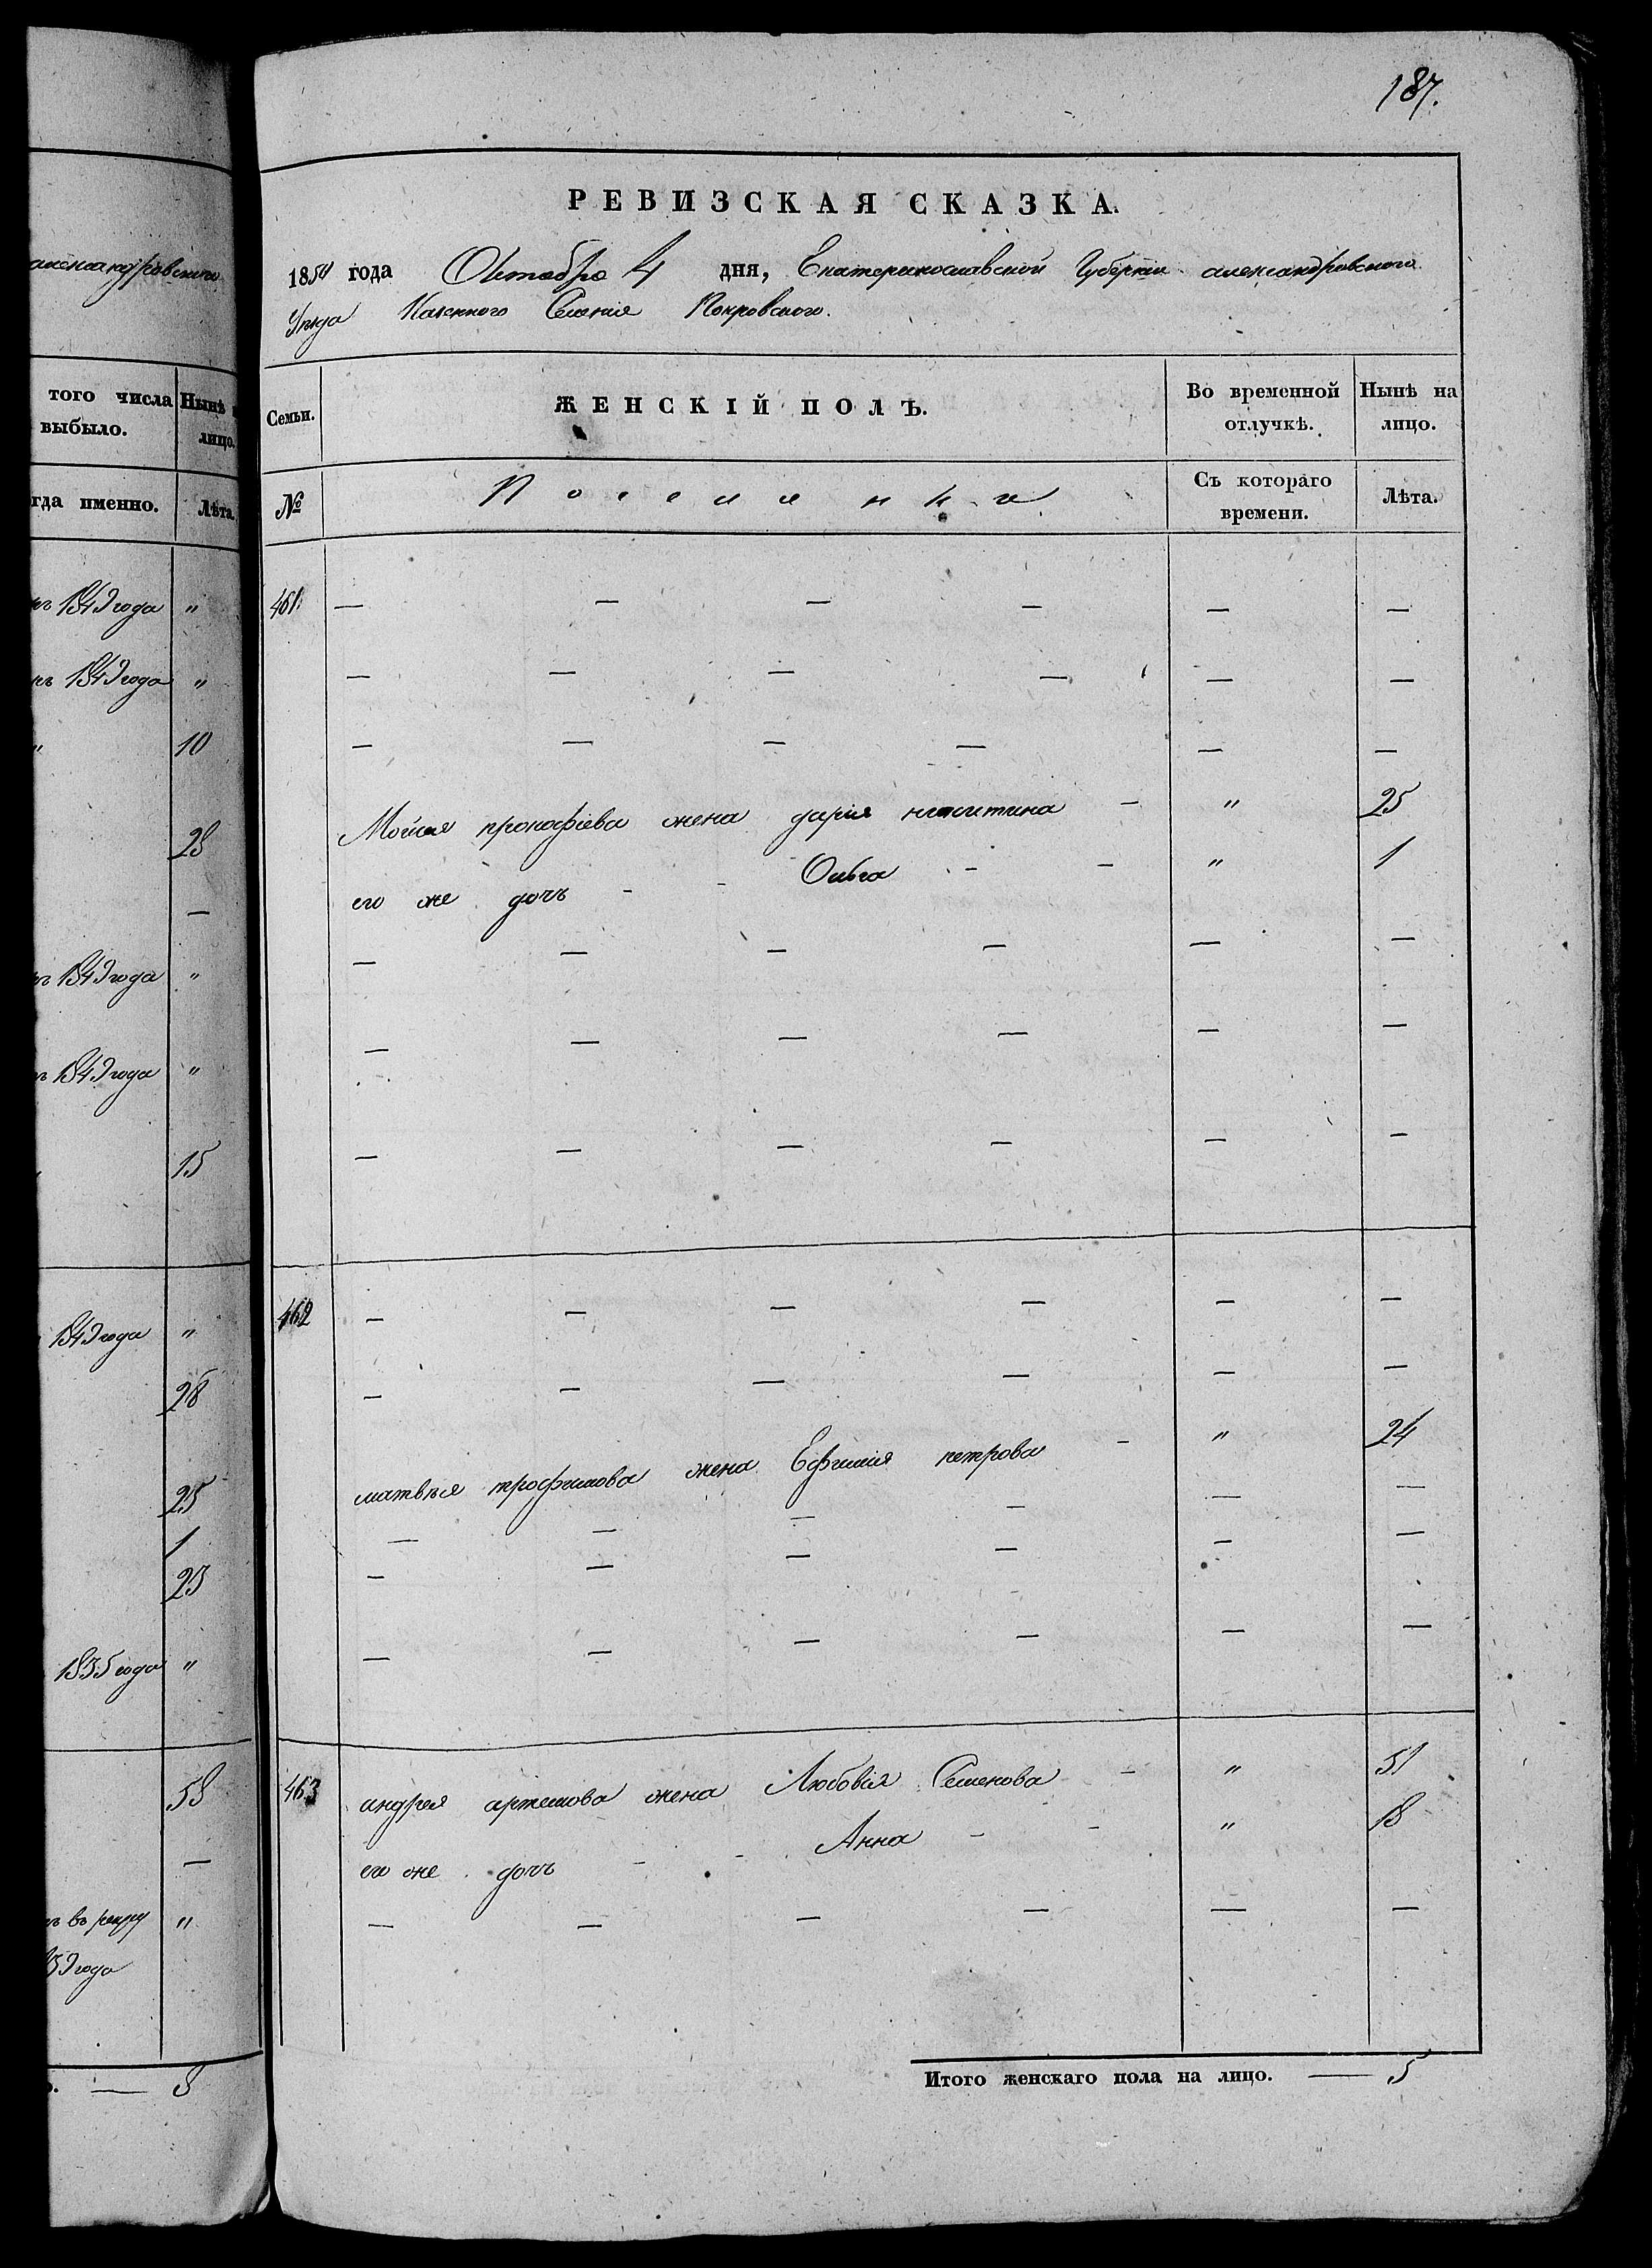 187.
александровского
того числа Нынѣ
выбыло. лицо.
гда именно. Лѣта.
1849 года "
1849 года "
" 10
28
—
1849 года "
1849 года "
15
1849 года "
26
25
1
23
1835 года "
58
—
въ рекру "
года
— 8
РЕВИЗСКАЯ СКАЗКА.
1850 года Октобра 4 дня, Екатеринославской Губернiи александровского
Уезда Казенного Селения Покровского.
Семьи. ЖЕНСКІЙ ПОЛЪ. Во временной отлучкѣ. Нынѣ на лицо.
№ Поселянки Съ котораго времени. Лѣта.
461. — — — — — —
— — — — — —
— — — — — —
Мойсея прокофіева жена дарія никитина - " 25
его же дочь - - Ольга - - " 1
— — — — — —
— — — — — —
— — — — — —
462 — — — — — —
— — — — — —
матвѣя трофимова жена Ефимія петрова - " 24
— — — — — —
— — — — — —
— — — — — —
463 андрея артемова жена Любовія Семенова - " 51
его же дочь - - Анна - - " 18
— — — — — —
Итого женскаго пола на лицо. — 5